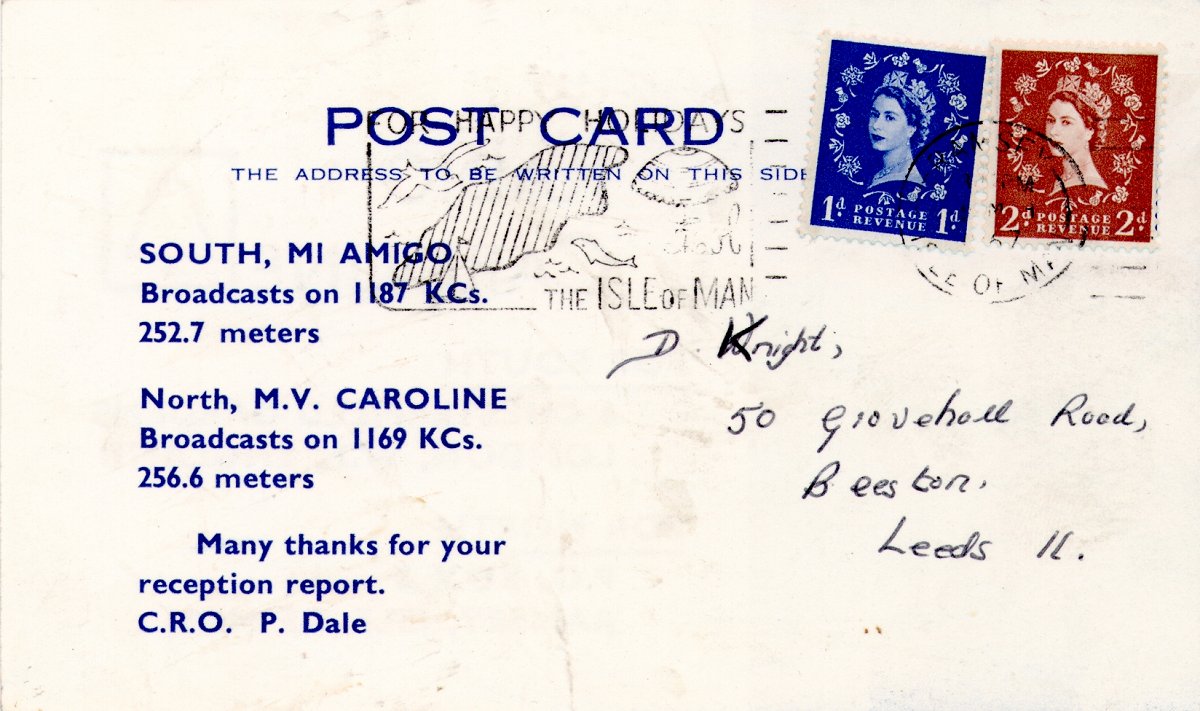 POST CARD
THE ADDRESS TO BE WRITTEN ON THIS SIDE
FOR HAPPY HOLIDAYS
THE ISLE OF MAN
1d POSTAGE REVENUE 1d
2d POSTAGE REVENUE 2d
ISLE OF MAN
SOUTH, MI AMIGO
Broadcasts on 1187 KCs.
252.7 meters
North, M.V. CAROLINE
Broadcasts on 1169 KCs.
256.6 meters
Many thanks for your
reception report.
C.R.O. P. Dale
D. Knight,
50 Grovehall Road,
Beeston.
Leeds 11.